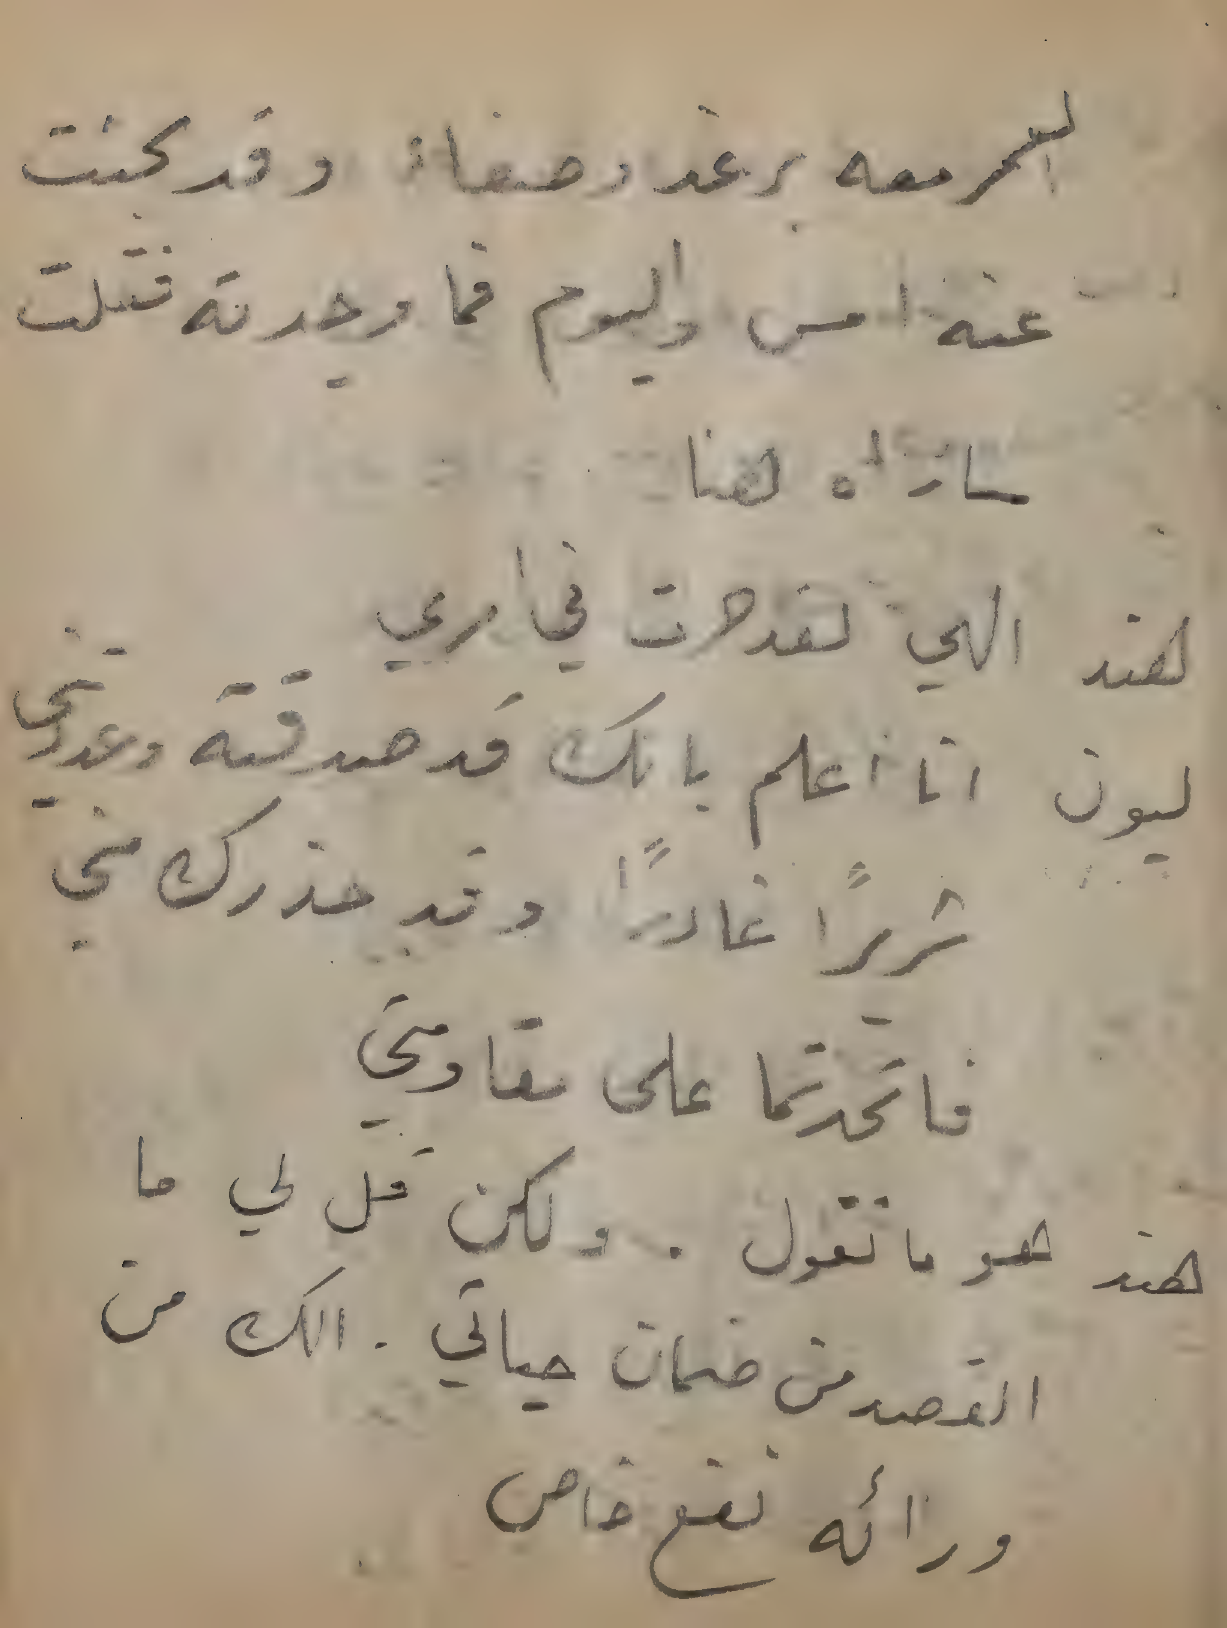 العمر معه برغد وصفاء وقد بحثت
عنه امس واليوم فما وجدته فقلت
ساراه هنا
هند الهي لقد حرت في امري
ليون انا اعلم بانك قد صدقته وعديتني
شريرًا غادرًا وقد حذرك مني
فاتحدتما على مقاومتي
هند هو ما تقول . ولكن قل لي ما
القصد من ضمان حياتي . الك من
ورائه نفع خاص